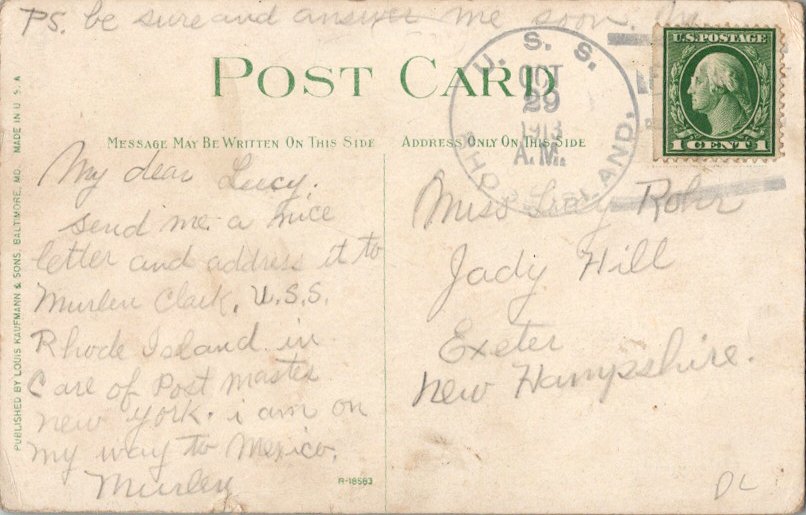 PS. be sure and answer me soon.
POST CARD
U. S. S.
OCT
29
1913
A.M.
RHODE ISLAND.
U.S. POSTAGE
1 CENT 1
MESSAGE MAY BE WRITTEN ON THIS SIDE
ADDRESS ONLY ON THIS SIDE
My dear Lucy,
send me a nice
letter and address it to
Murlen Clark, U.S.S.
Rhode Island in
Care of Post master
new york. i am on
my way to Mexico.
Murlen
Miss Lucy Rohr
Jady Hill
Exeter
New Hampshire.
PUBLISHED BY LOUIS KAUFMANN & SONS, BALTIMORE, MD. MADE IN U.S.A
R-18583
DL